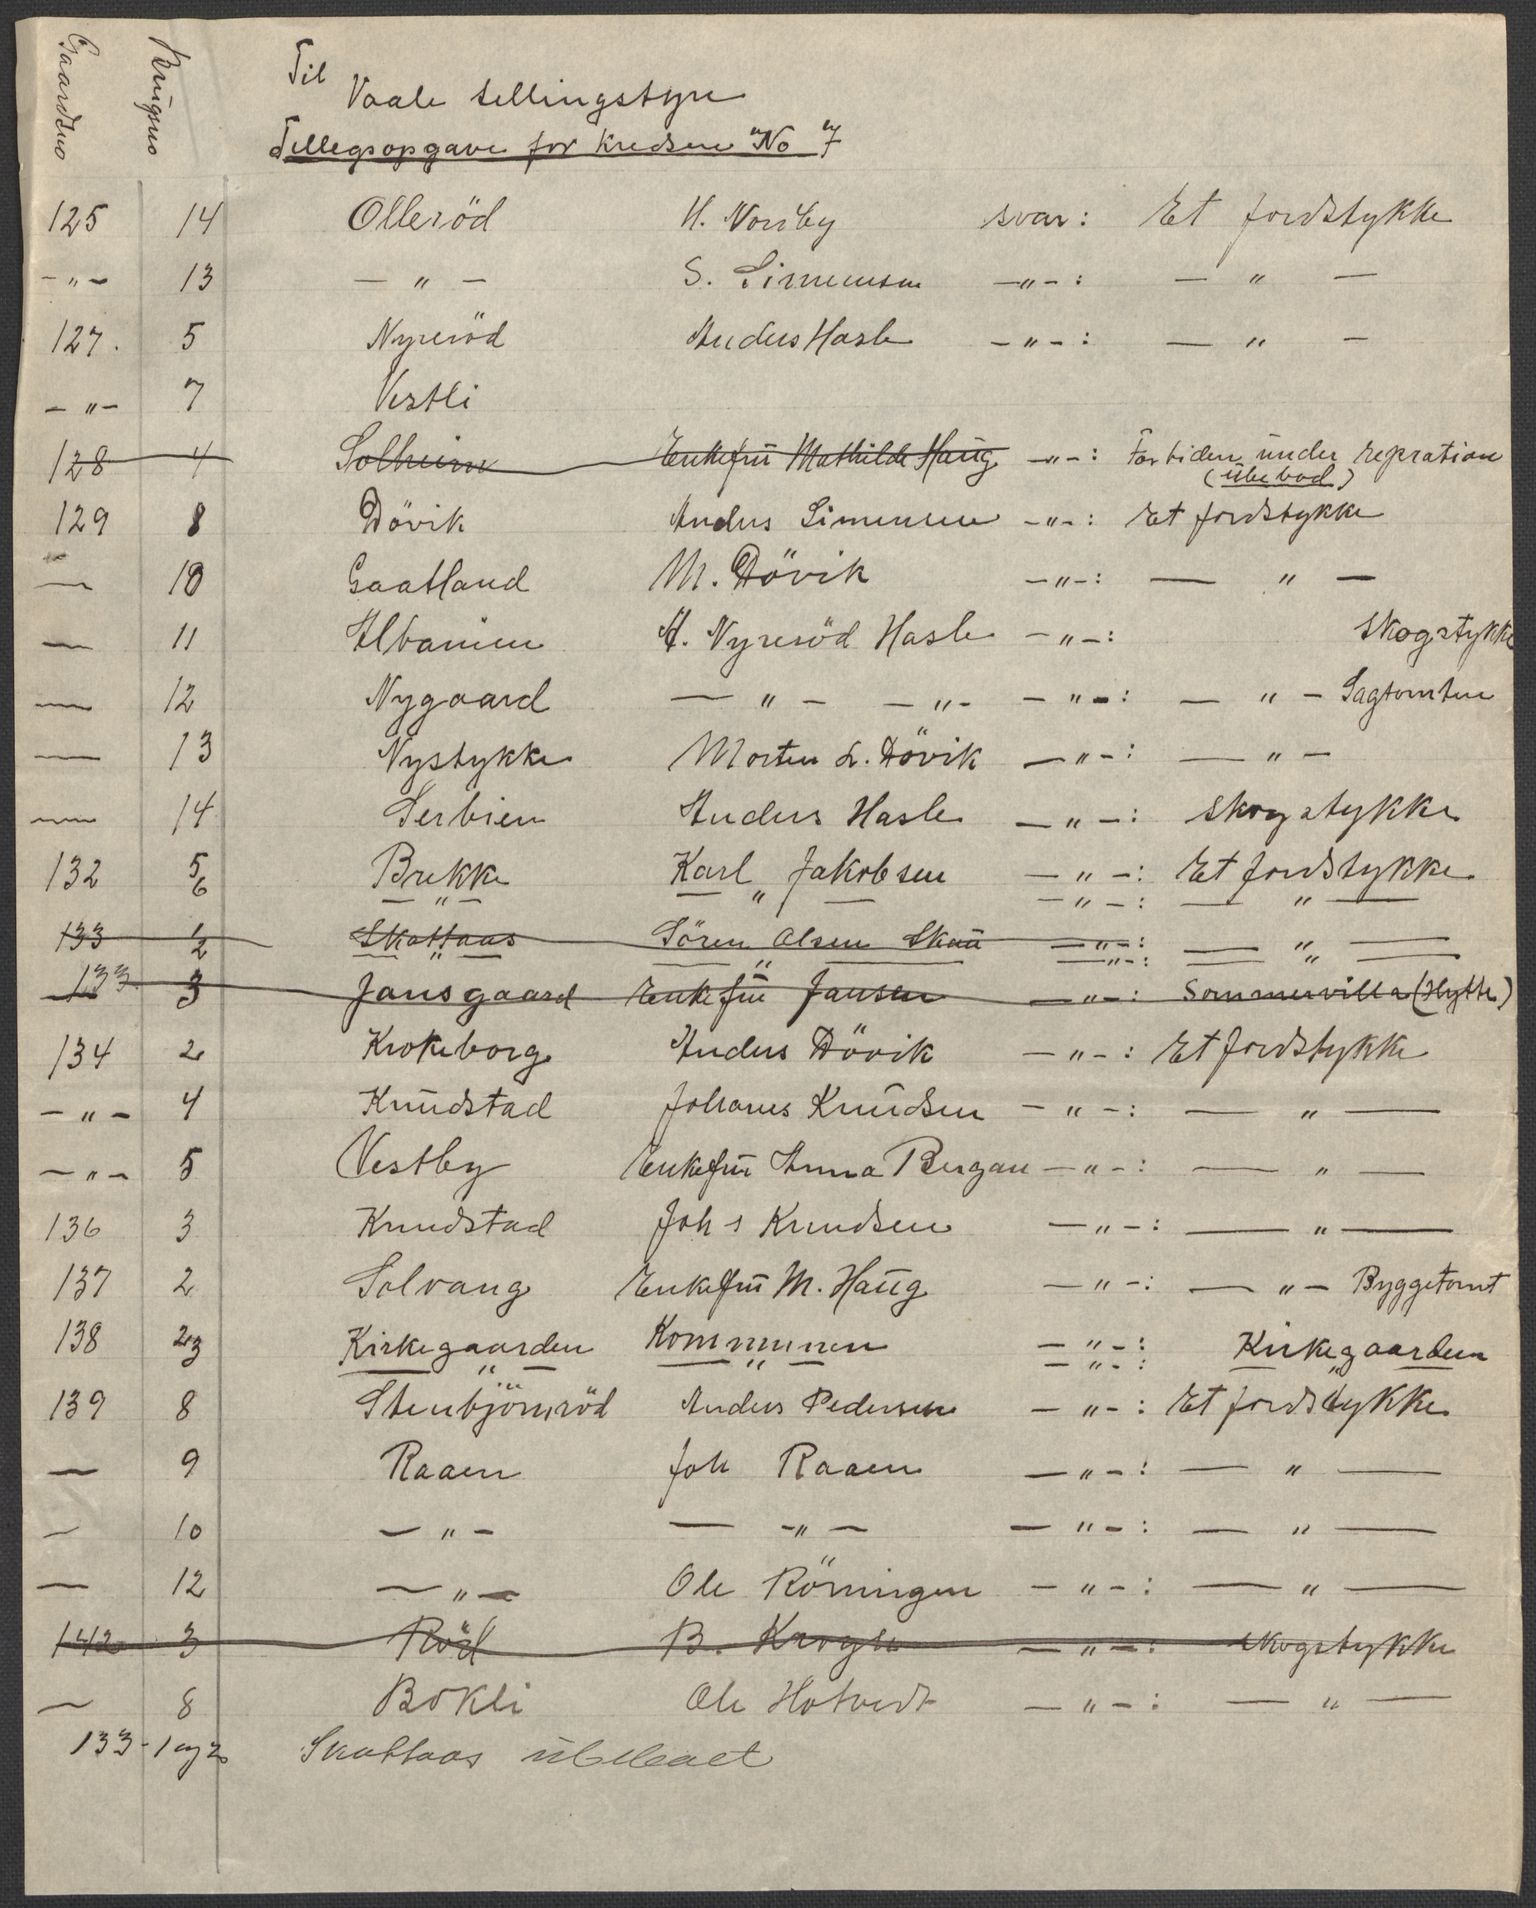 Gaardsno Brugsno
Til
Vaale tellingstyre
Tillegsopgave for Kredsen "No" 7
125 14 Olleröd H. Norby svar: Et Jordstykke
- " - 13 - " - S. Simensen - " - : - " -
127. 5 Nyreröd Anders Hasle - " - : - " -
- " - 7 Vestli
128 4 Solheim Enkefru Mathilde Haug - " - : For tiden under repration
(ubebod)
129 8 Dövik Anders Simensen - " - : Et jordstykke
— 10 Gaatland M. Dövik - " - : - " -
— 11 Albanien A. Nyresöd Hasle - " - : Skogstykke
— 12 Nygaard - " - - " - - " - : - " - Sagtomten
— 13 Nystykke Morten L. Dövik - " - : - " -
— 14 Serbien Anders Hasle - " - : Skogstykke
132 5 Brekke Karl Jakobsen - " - : Et jordstykke
6 - " - - " - - " - : - " -
133 1 Skattaas Sören Olsen Skau - " - : - " -
2 - " - - " - - " - : - " -
133 3 Jansgaard Enkefru Jansen - " - : Sommervilla (Hytte)
134 2 Krokeborg Anders Dövik - " - : Et jordstykke
- " - 4 Knudstad Johanes Knudsen - " - : - " -
- " - 5 Vestby Enkefru Anna Bergan - " - : - " -
136 3 Knudstad Joh s Knudsen - " - : - " -
137 2 Solvang Enkefru M. Haug - " - : - " - Byggetomt
138 2 Kirkegaarden Kommunen - " - : Kirkegaarden
3 - " - - " - - " - : "
139 8 Stenbjörnröd Anders Pedersen - " - : Et jordstykke
— 9 Raaen Joh Raaen - " - : - " -
— 10 - " - - " - - " - : - " -
— 12 - " - Ole Rönningen - " - : - " -
142 3 Röd B. Krogh - " - : skogstykke
— 8 Bökli Ole Hotvedt - " - : - " -
133 - 1 og 2 Skattaas ubeboet